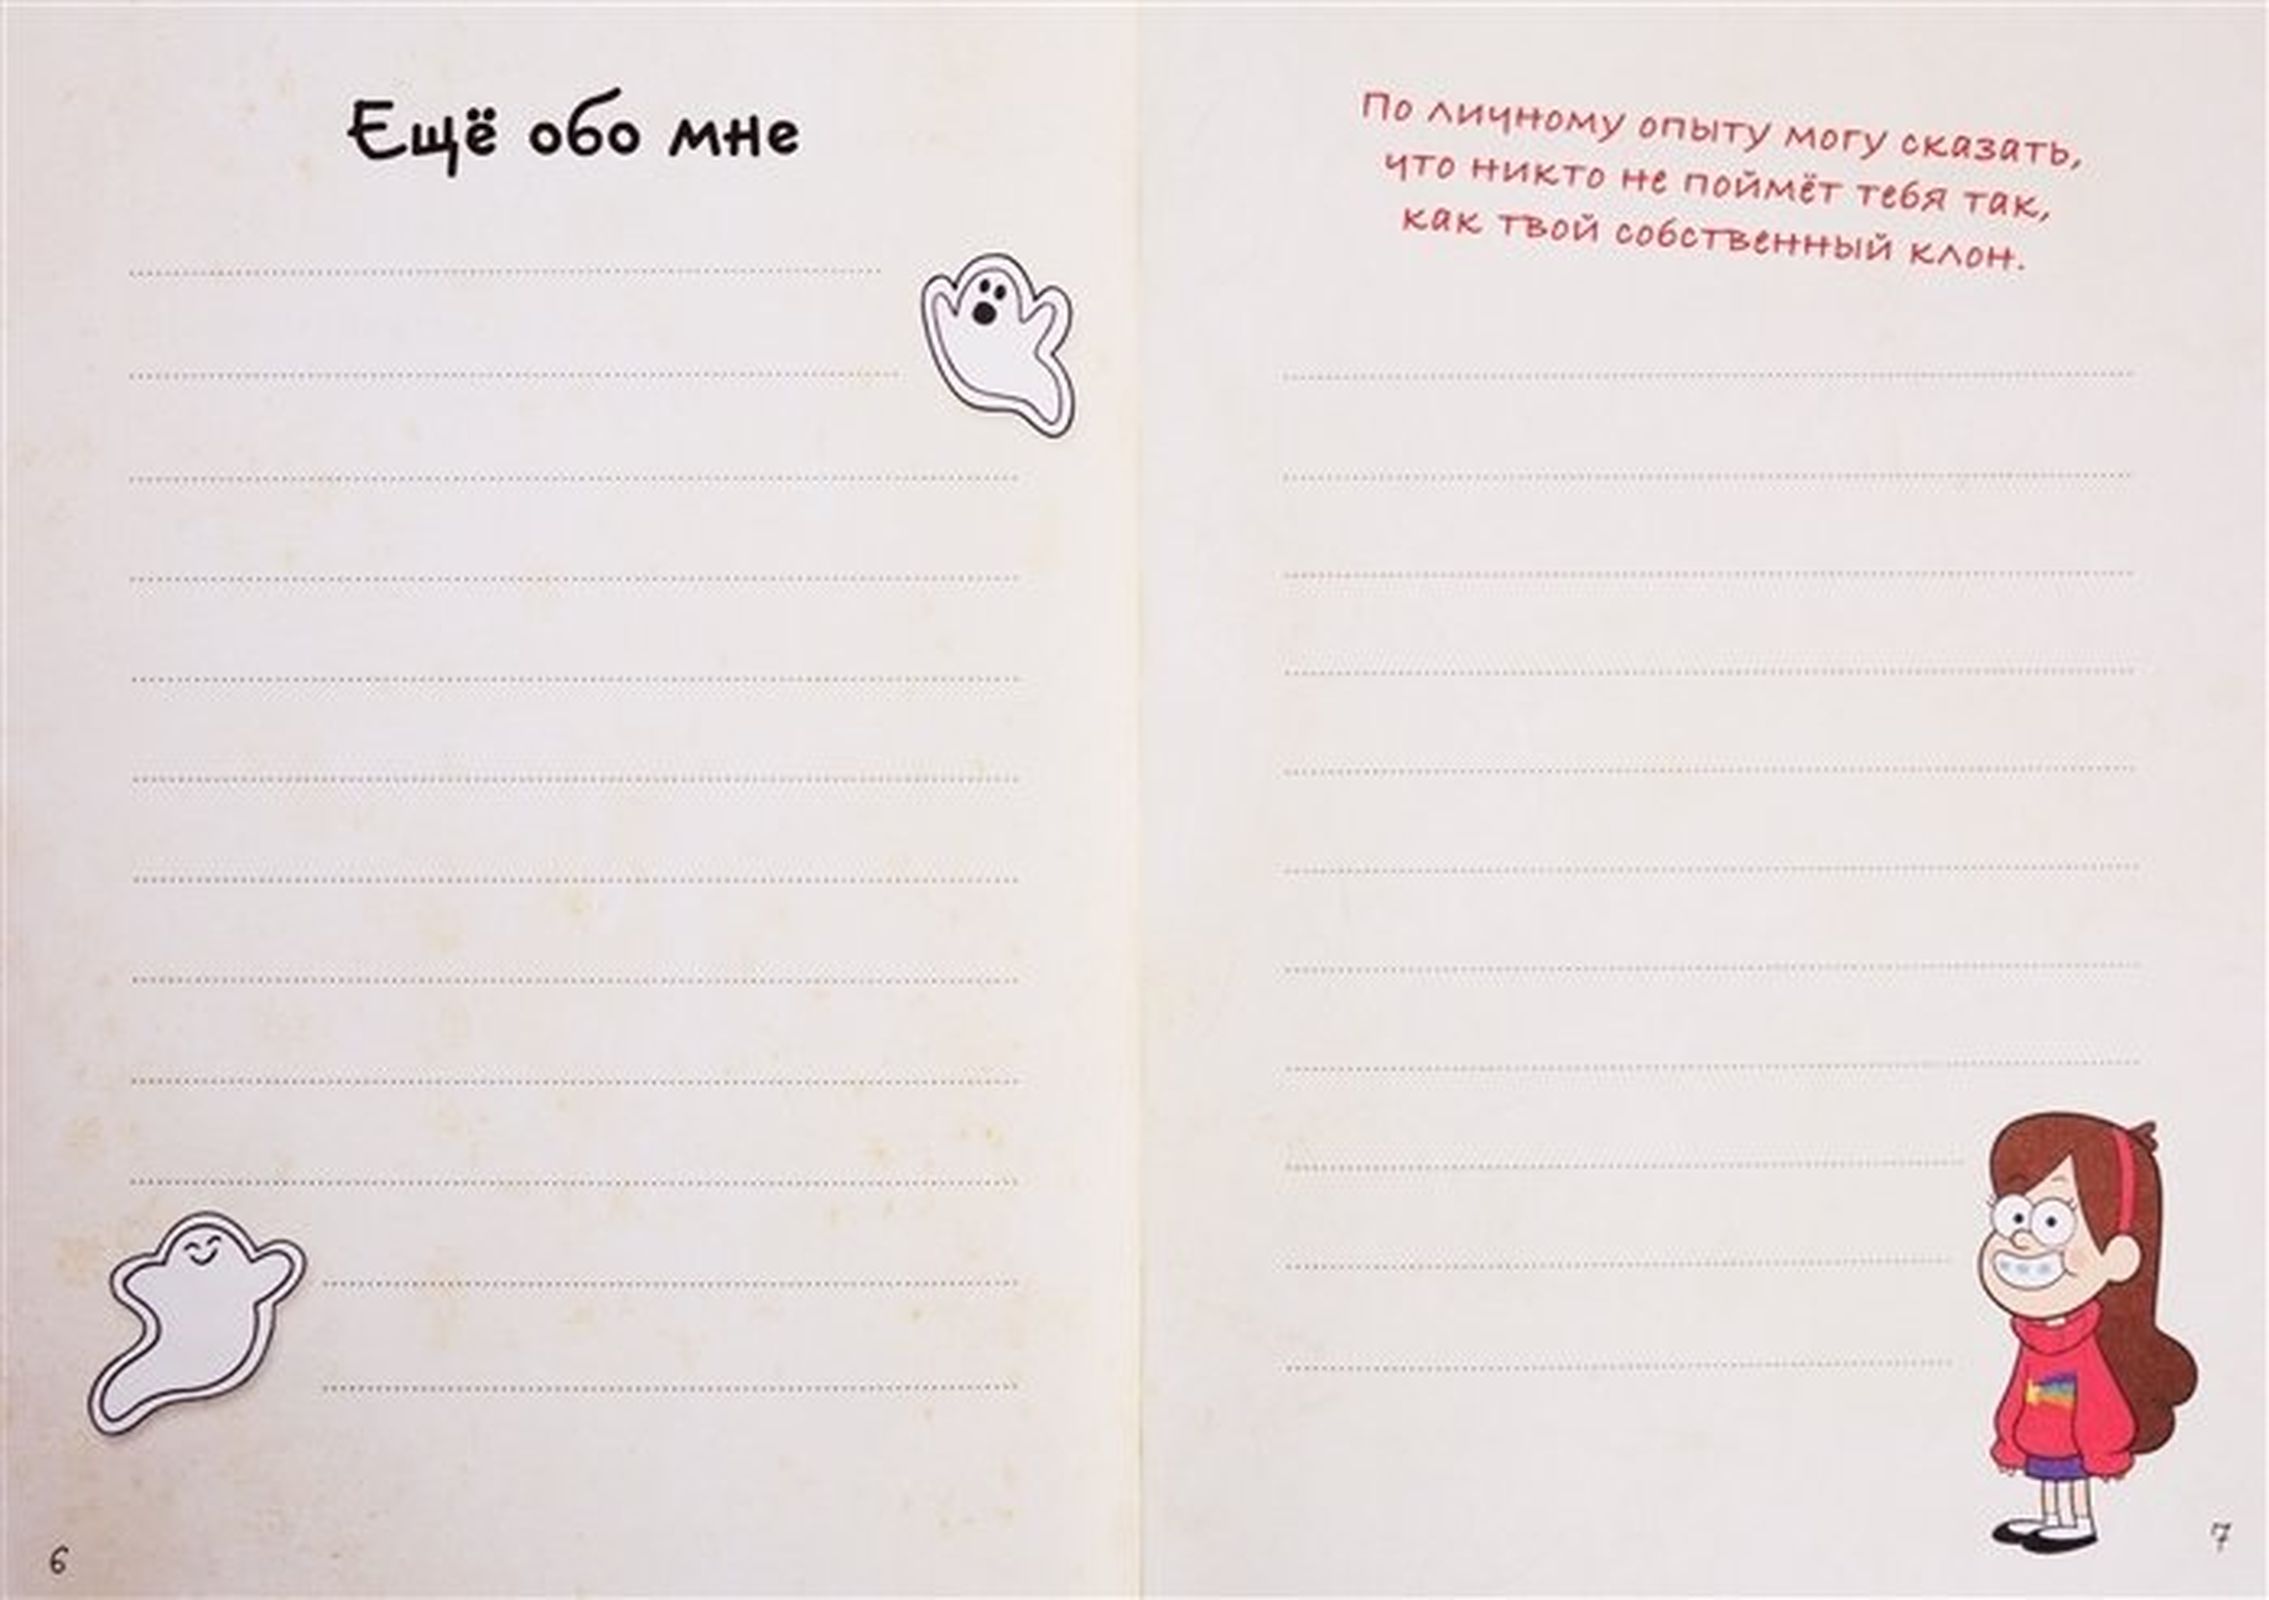 Ещё обо мне
6
По личному опыту могу сказать,
что никто не поймёт тебя так,
как твой собственный клон.
7